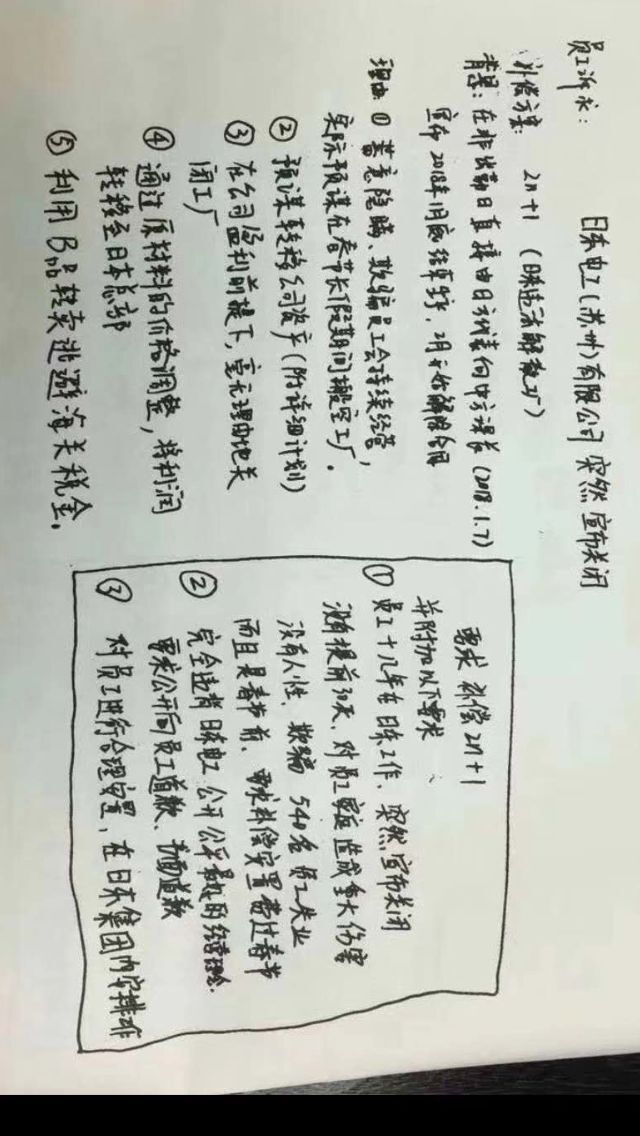 员工诉求:
日东电工(苏州)有限公司 突然宣布关闭
补偿方案: 2n+1 (日东违法解散工厂)
背景:在非出勤日直接由日方代表向中方课长(2018.1.7)
宣布2018年1月底结束生产,2月开始解除合同
理由:① 恶意隐瞒、欺骗员工会持续经营,
实际预谋在春节长假期间搬空工厂。
② 预谋转移公司资产(附详细计划)
③ 在公司盈利前提下,毫无理由地关
闭工厂
④ 通过原材料的价格调整,将利润
转移至日本总部
⑤ 利用B品贩卖逃避海关税金。
要求 补偿2n+1
并附加以下要求
① 员工十几年在日东工作,突然宣布关闭
没有提前30天,对员工家庭造成重大伤害
没有人性、欺骗 540名员工失业
而且是春节前,要求补偿安置费过春节
② 完全违背日东电工公开公平的经营理念.
要求公开向员工道歉、书面道歉
③ 对员工进行合理安置,在日东集团内安排